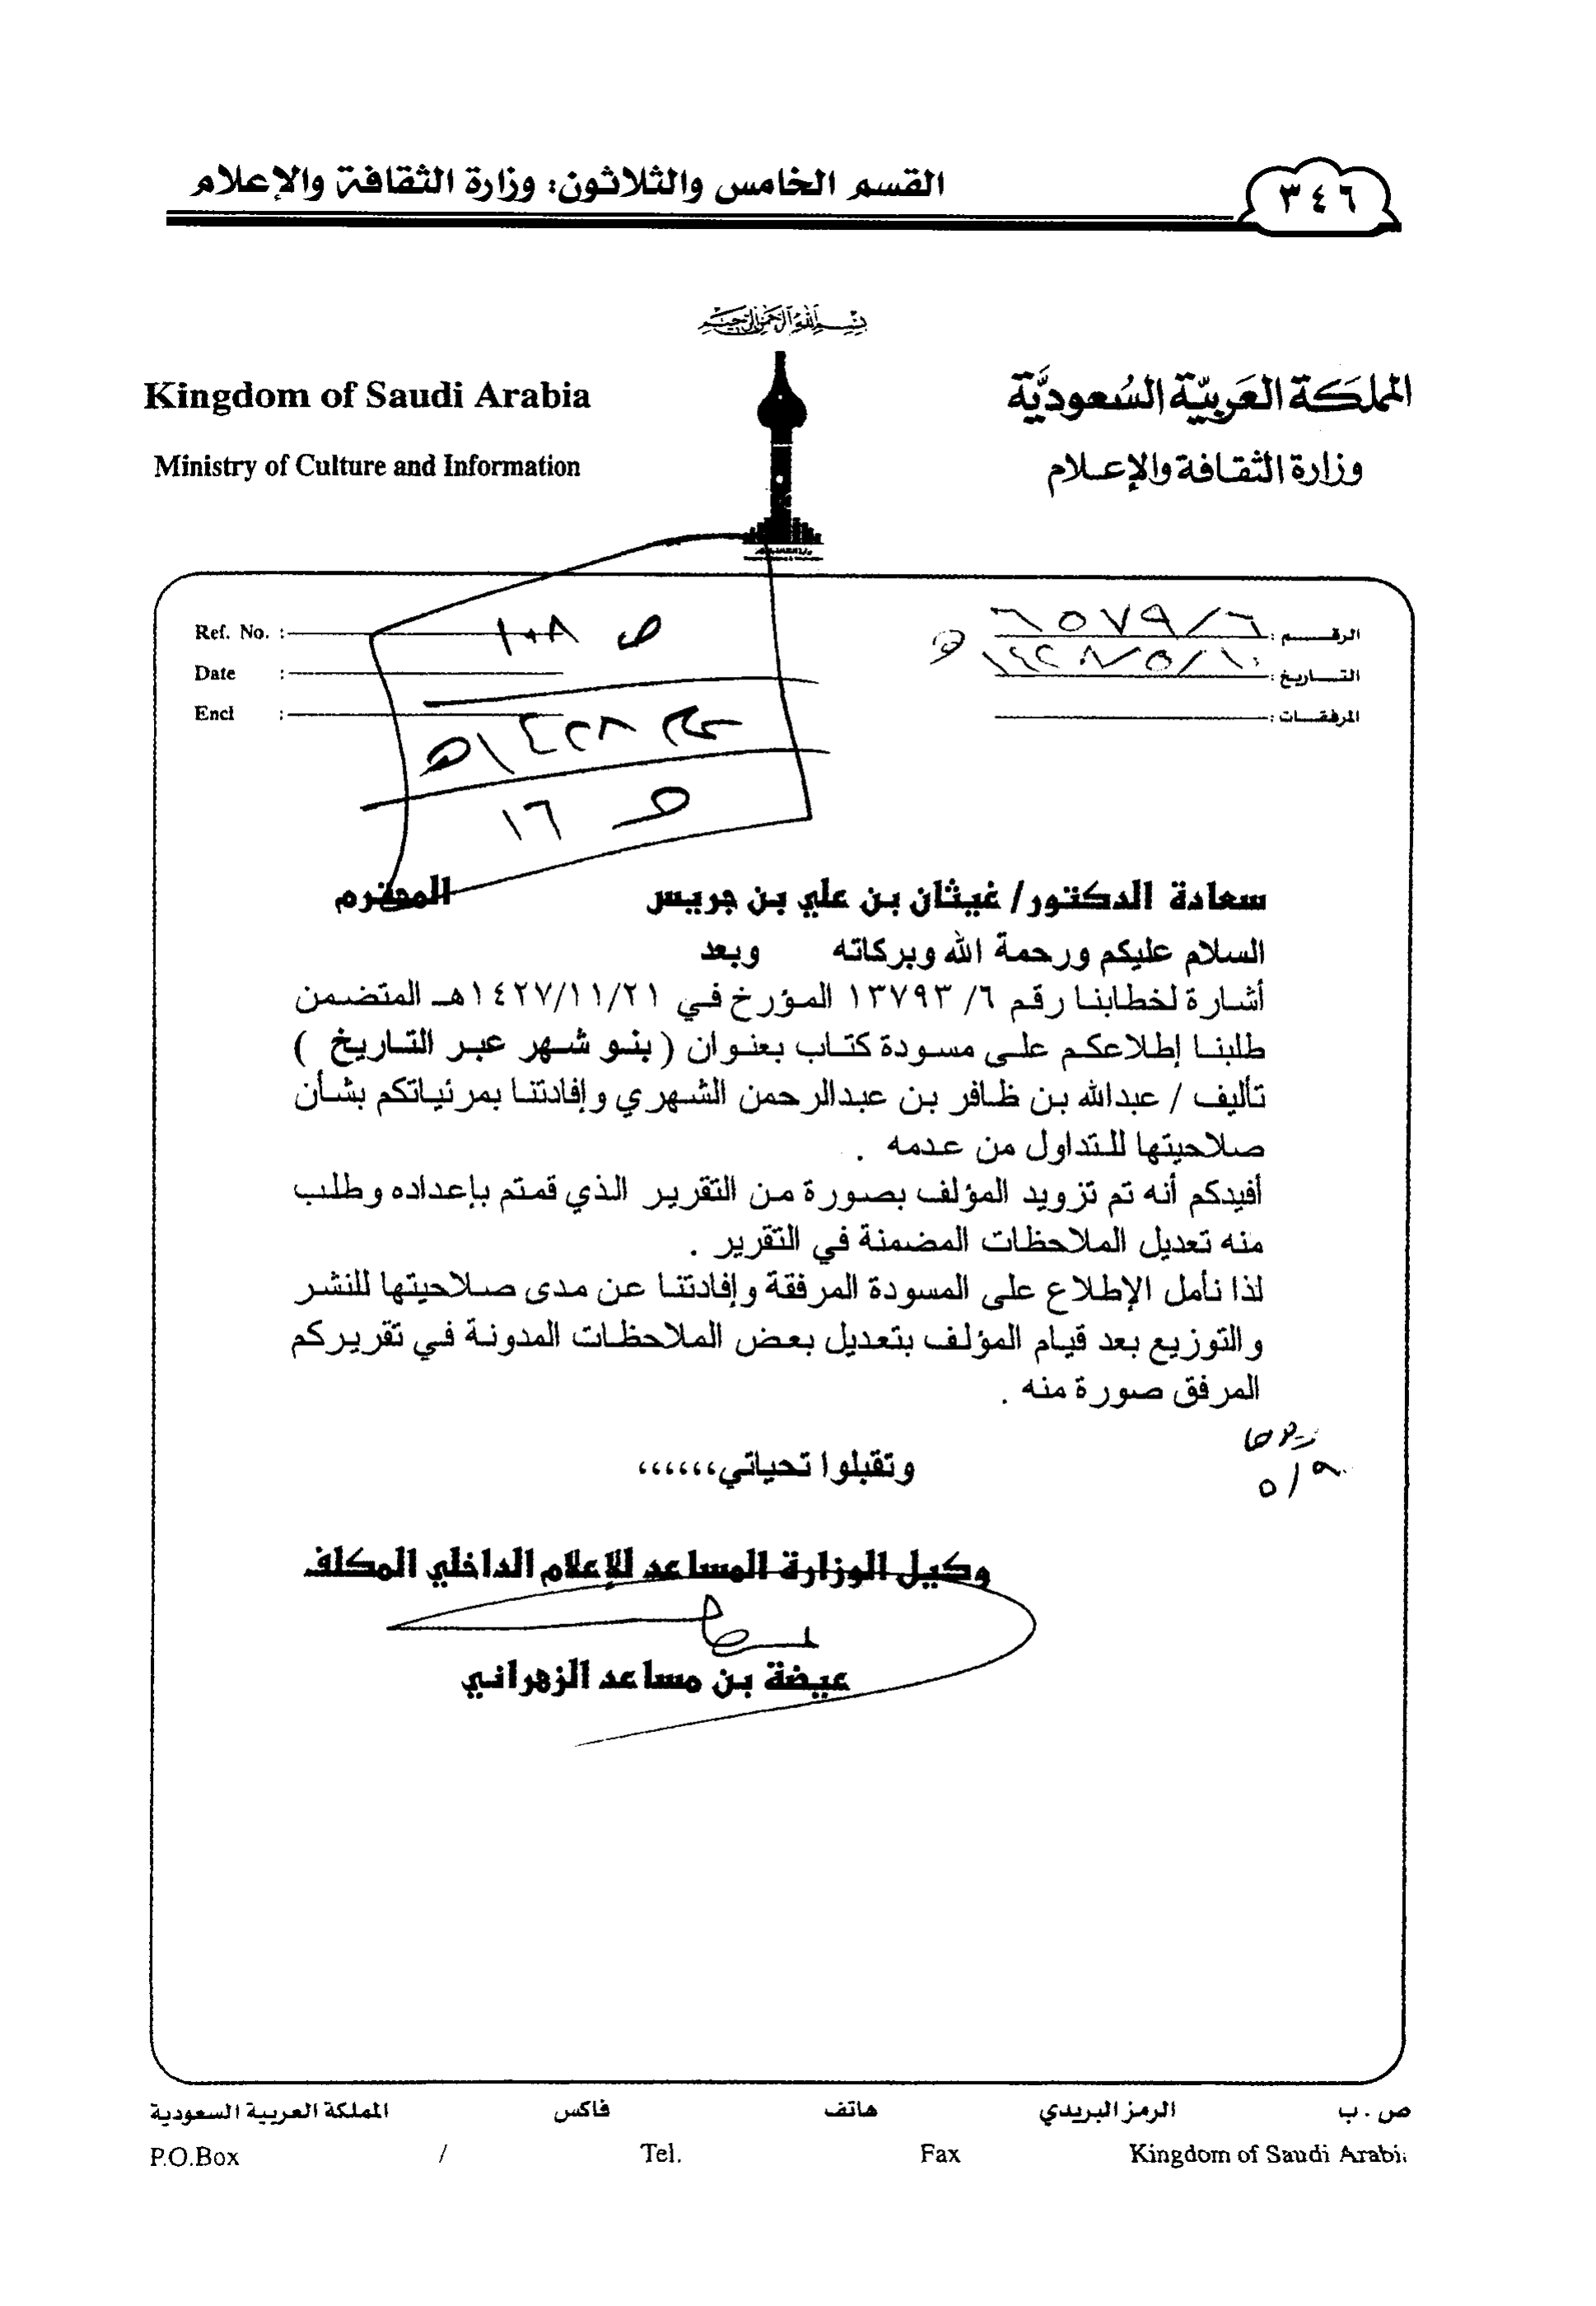 القسم الخامس والثلاثون: وزارة الثقافة والإعلام
٣٤٦
بسم الله الرحمن الرحيم
Kingdom of Saudi Arabia
المملكة العربية السعودية
Ministry of Culture and Information
وزارة الثقافة والإعلام
الرقم : ٦٥٧٩/٦
التاريخ : ١٤٢٨/٥/١٠ هـ
المرفقات :
Ref. No. :
Date :
Encl :
ص ١٠٨
١٤٢٨ هـ
١٦
سعادة الدكتور/ غيثان بن علي بن جريس المحترم
السلام عليكم ورحمة الله وبركاته وبعد
أشارة لخطابنا رقم ٦/ ١٣٧٩٣ المؤرخ في ١٤٢٧/١١/٢١هـ المتضمن
طلبنا إطلاعكم على مسودة كتاب بعنوان ( بنو شهر عبر التاريخ )
تأليف / عبدالله بن ظافر بن عبدالرحمن الشهري وإفادتنا بمرئياتكم بشأن
صلاحيتها للتداول من عدمه .
أفيدكم أنه تم تزويد المؤلف بصورة من التقرير الذي قمتم بإعداده وطلب
منه تعديل الملاحظات المضمنة في التقرير .
لذا نأمل الإطلاع على المسودة المرفقة وإفادتنا عن مدى صلاحيتها للنشر
والتوزيع بعد قيام المؤلف بتعديل بعض الملاحظات المدونة في تقريركم
المرفق صورة منه .
٥/٩
وتقبلوا تحياتي،،،،،،
وكيل الوزارة المساعد للإعلام الداخلي المكلف
عيضة بن مساعد الزهراني
ص . ب الرمز البريدي هاتف فاكس المملكة العربية السعودية
P.O.Box / Tel. Fax Kingdom of Saudi Arabi